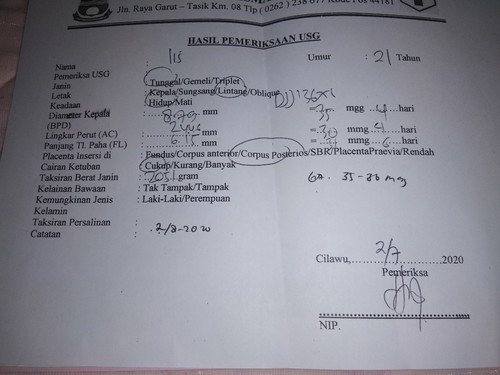 Jln. Raya Garut – Tasik Km. 08 Tlp ( 0262 ) 238 077 Kode Pos 44181
HASIL PEMERIKSAAN USG
Nama : Iis Umur : 21 Tahun
Pemeriksa USG :
Janin : Tunggal/Gemeli/Triplet
Letak : Kepala/Sungsang/Lintang/Oblique
Keadaan : Hidup/Mati DJJ 136x/
Diameter Kepala (BPD) : mm = 35 mgg 4 hari
Lingkar Perut (AC) : mm = 30 mmg 4 hari
Panjang Tl. Paha (FL) : 6.15 mm = mgg 6 hari
Placenta Insersi di : Fundus/Corpus anterior/Corpus Posterios/SBR/PlacentaPraevia/Rendah
Cairan Ketuban : Cukup/Kurang/Banyak
Taksiran Berat Janin : 2051 gram
Kelainan Bawaan : Tak Tampak/Tampak
Kemungkinan Jenis Kelamin : Laki-Laki/Perempuan
Taksiran Persalinan : 2/8-2020
Catatan :
Cilawu, 2/7 2020
Pemeriksa
NIP.